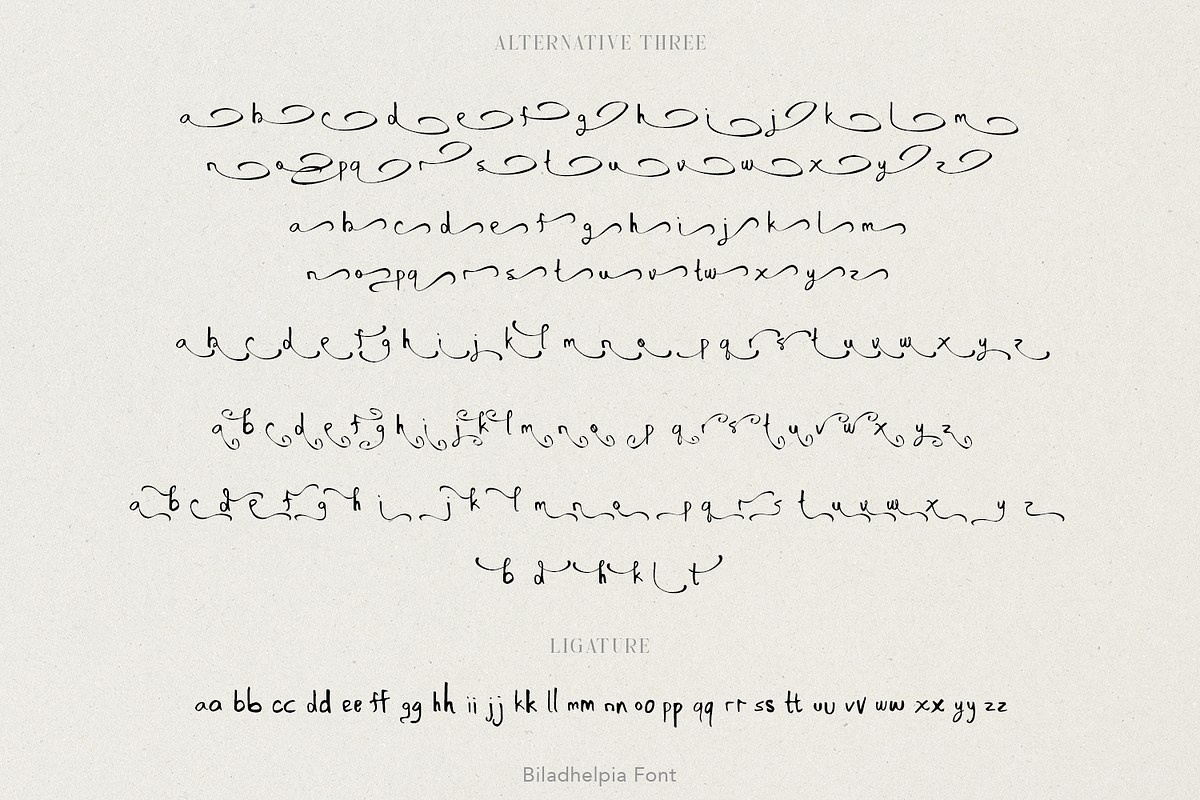 ALTERNATIVE THREE
a b c d e f g h i j k l m
n o p q r s t u v w x y z
a b c d e f g h i j k l m
n o p q r s t u v t w x y z
a b c d e f g h i j k l m n o p q r s t u v w x y z
a b c d e f g h i j k l m n o p q r s t u v w x y z
a b c d e f g h i j k l m n o p q r s t u v w x y z
b d h k l t
LIGATURE
aa bb cc dd ee ff gg hh ii jj kk ll mm nn oo pp qq rr ss tt uu vv ww xx yy zz
Biladhelpia Font